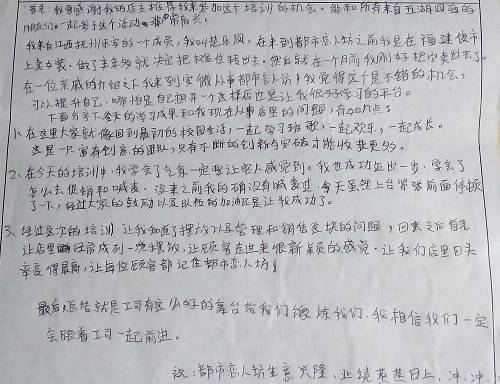 首先,我很感谢我的店主推荐我来参加这个培训的机会。能和所有来自五湖四海的
朋友们一起参于这个活动,非常高兴!
我来自江西抚州乐安的一个成员,我叫 乐凤。在来到都市恋人坊之前我是在福建
上卖女装。做了
在一位亲戚的介绍之下我来到 从事都市恋人坊!我觉得这个是不错的机会,
可以提升自己。哪怕是自己想开一个这样店也是让我很好学习的平台。
下面分享下今天的学习成果和我现在从事店里的问题,有如几点:
1、在这里大家就像回到最初的校园生活,一起学习班歌,一起欢乐,一起成长。
这是一只富有创意的团队,只有不断的创新与突破才能收获更多。
2、在今天的学习中,我学会了气氛一定要让客人感觉到。我也成功迈出一步,学会了
怎么去促销和喊麦。说来之前我的确没有喊麦过,今天虽然上台紧张前面停顿
了下,经过大家的鼓励以及队伍的加油还是让我成功了。
3、经过这次的培训,让我懂了摆放以及管理和销售这块的问题,回去之后首先
让店里经常成列一次摆放,让顾客在进来很新鲜的感觉,让我们店里回头
率变得最高,让每位顾客都记住都市恋人坊!
最后,总结就是公司有这么好的舞台给我们锻炼我们,我相信我们一定
会跟着公司一起前进。
祝:都市恋人坊生意兴隆、业绩蒸蒸日上,冲、冲